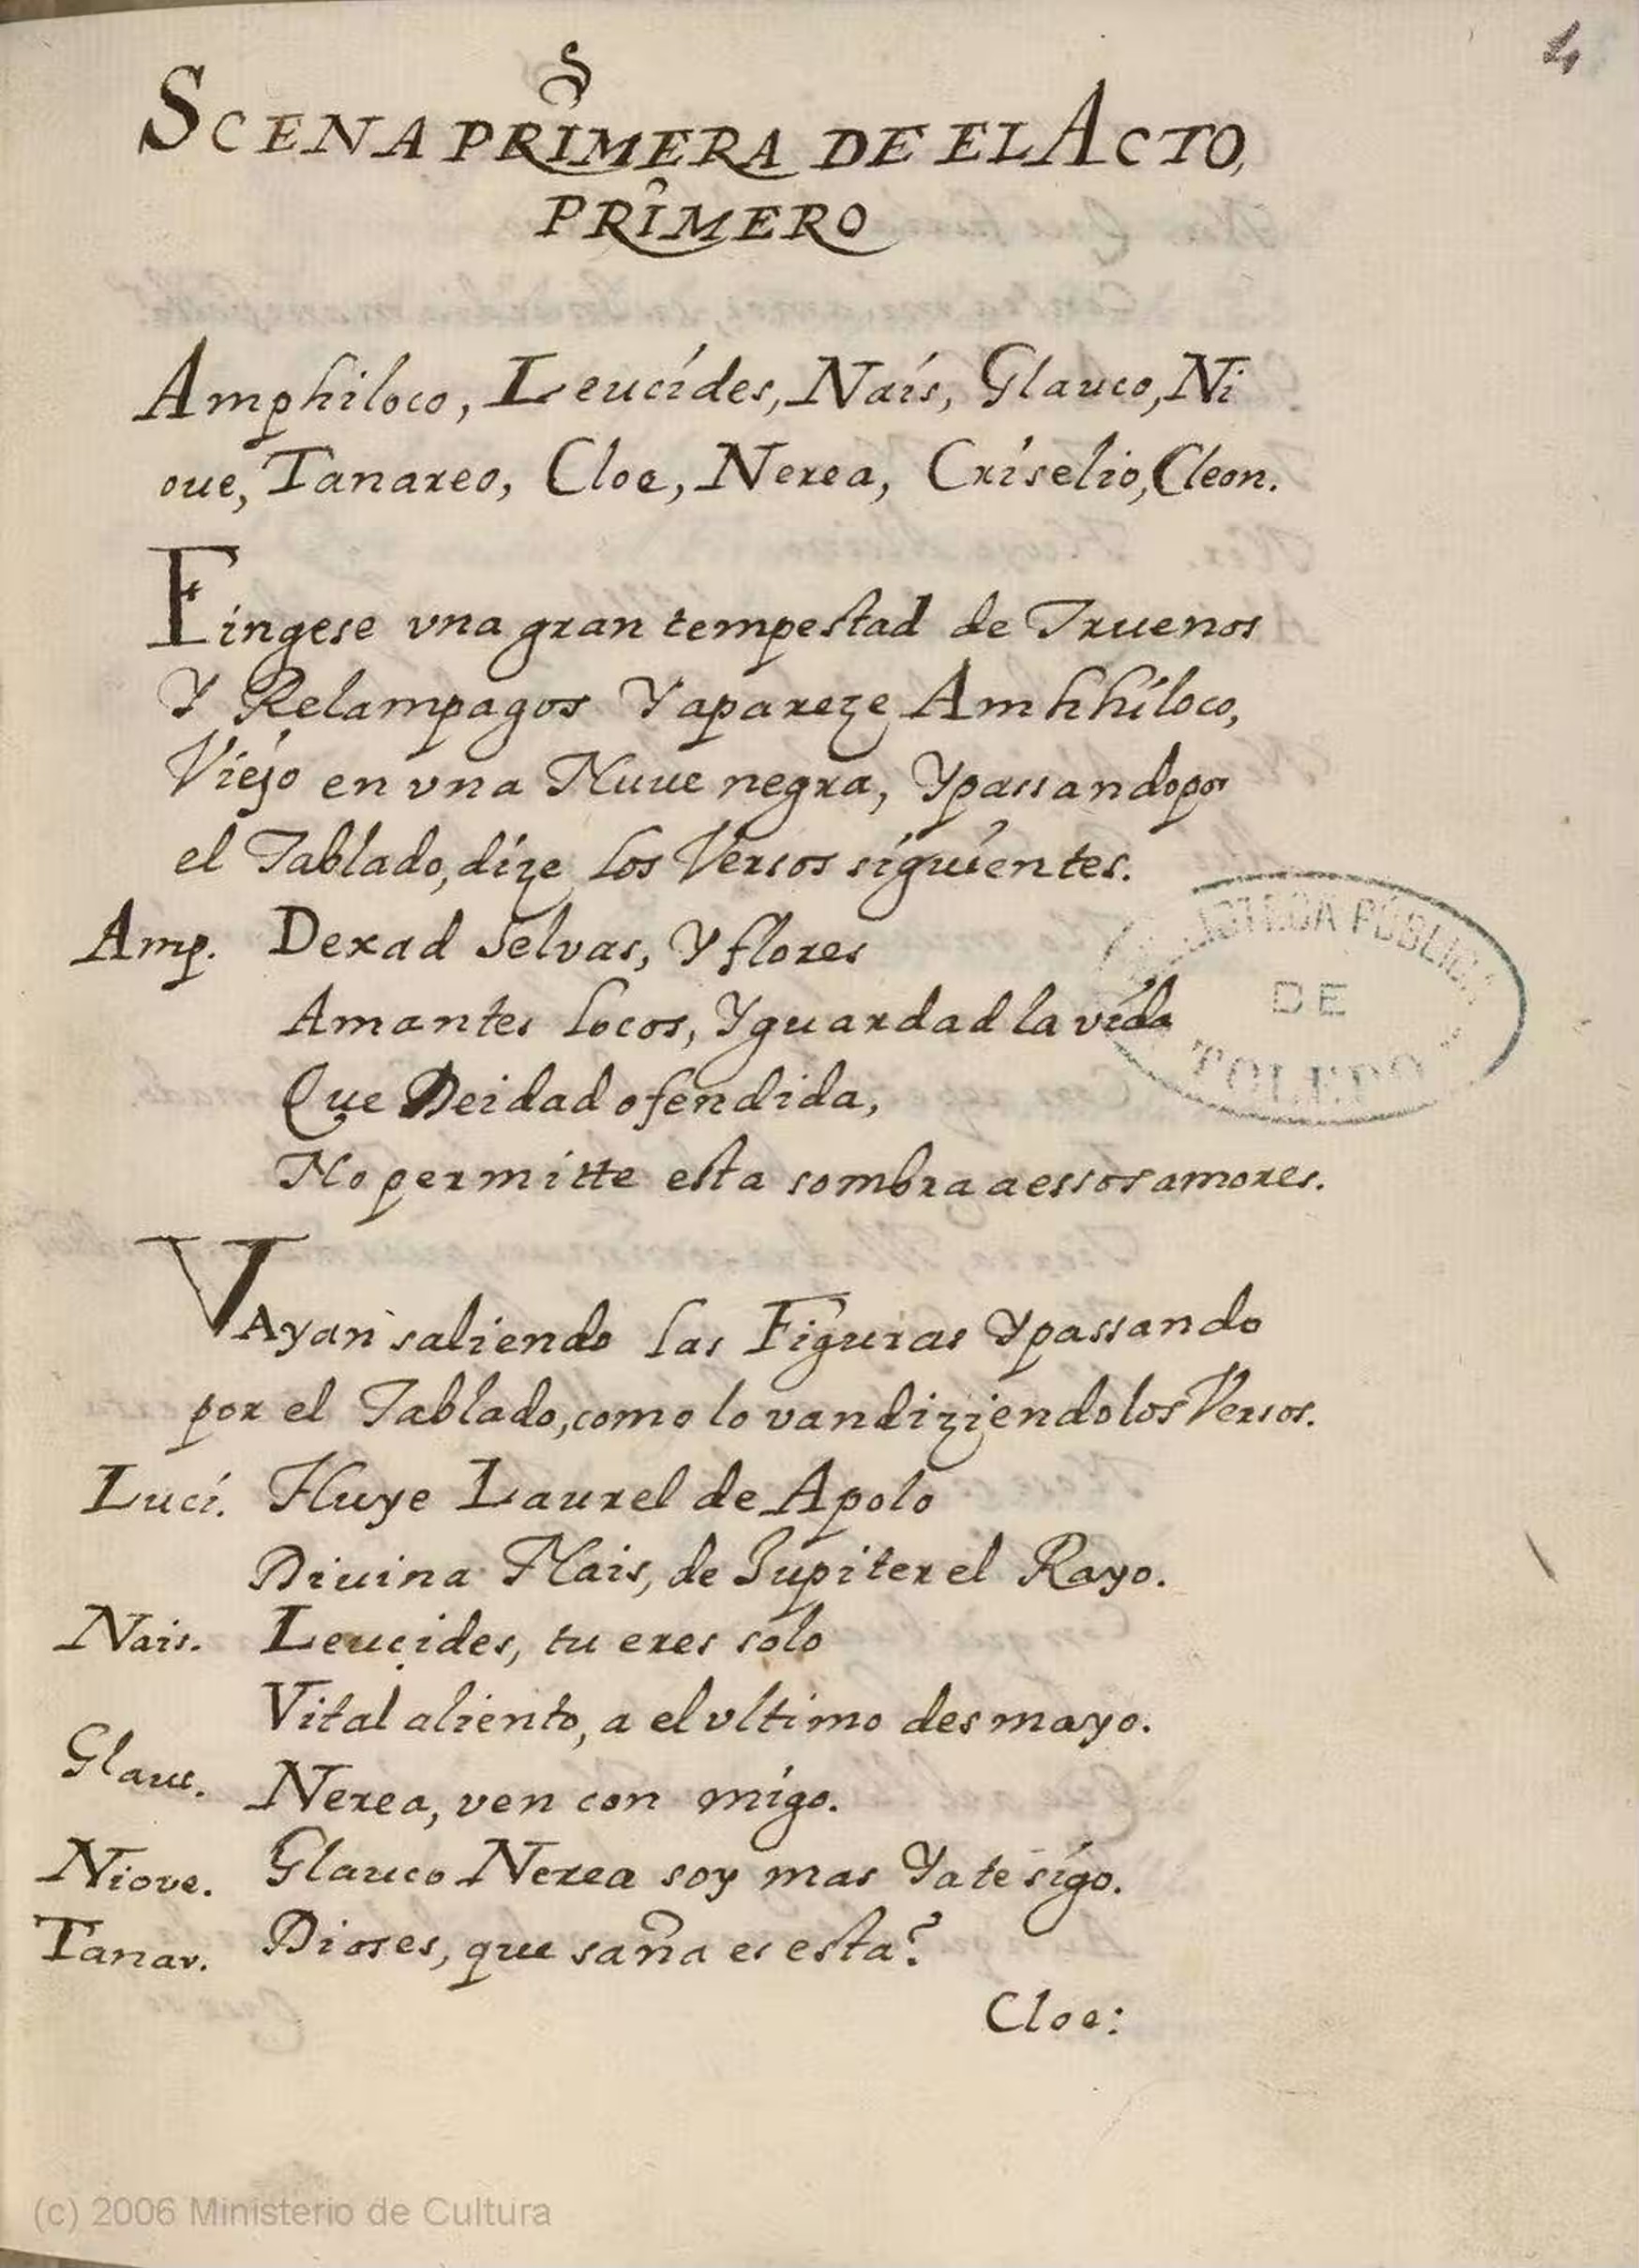 4
SCENA PRIMERA DE EL ACTO,
PRIMERO
Amphiloco, Leucídes, Naís, Glauco, Ni
oue, Tanareo, Cloe, Nerea, Críselio, Cleon.
Fingese vna gran tempestad de Truenos
Y Relampagos Y apareze Amhhíloco,
Viejo en vna Nuue negra, Y passando por
el Tablado, díze los Versos síguíentes.
Amp. Dexad Selvas, Y flores
Amantes locos, Y guardad la vída
Que Deidad ofendida,
No permitte esta sombra a essos amores.
VAyan saliendo las Figuras Y passando
por el Tablado, como lo van diziendo los Versos.
Lucí. Huye Laurel de Apolo
Diuina Nais, de Jupiter el Rayo.
Nais. Leucides, tu eres solo
Vital aliento, a el vltimo desmayo.
Glauc. Nerea, ven con mígo.
Niove. Glauco Nerea soy mas Ya te sígo.
Tanar. Dioses, que saña es esta?
Cloe:
BIBLIOTECA PÚBLICA
DE
TOLEDO
(c) 2006 Ministerio de Cultura